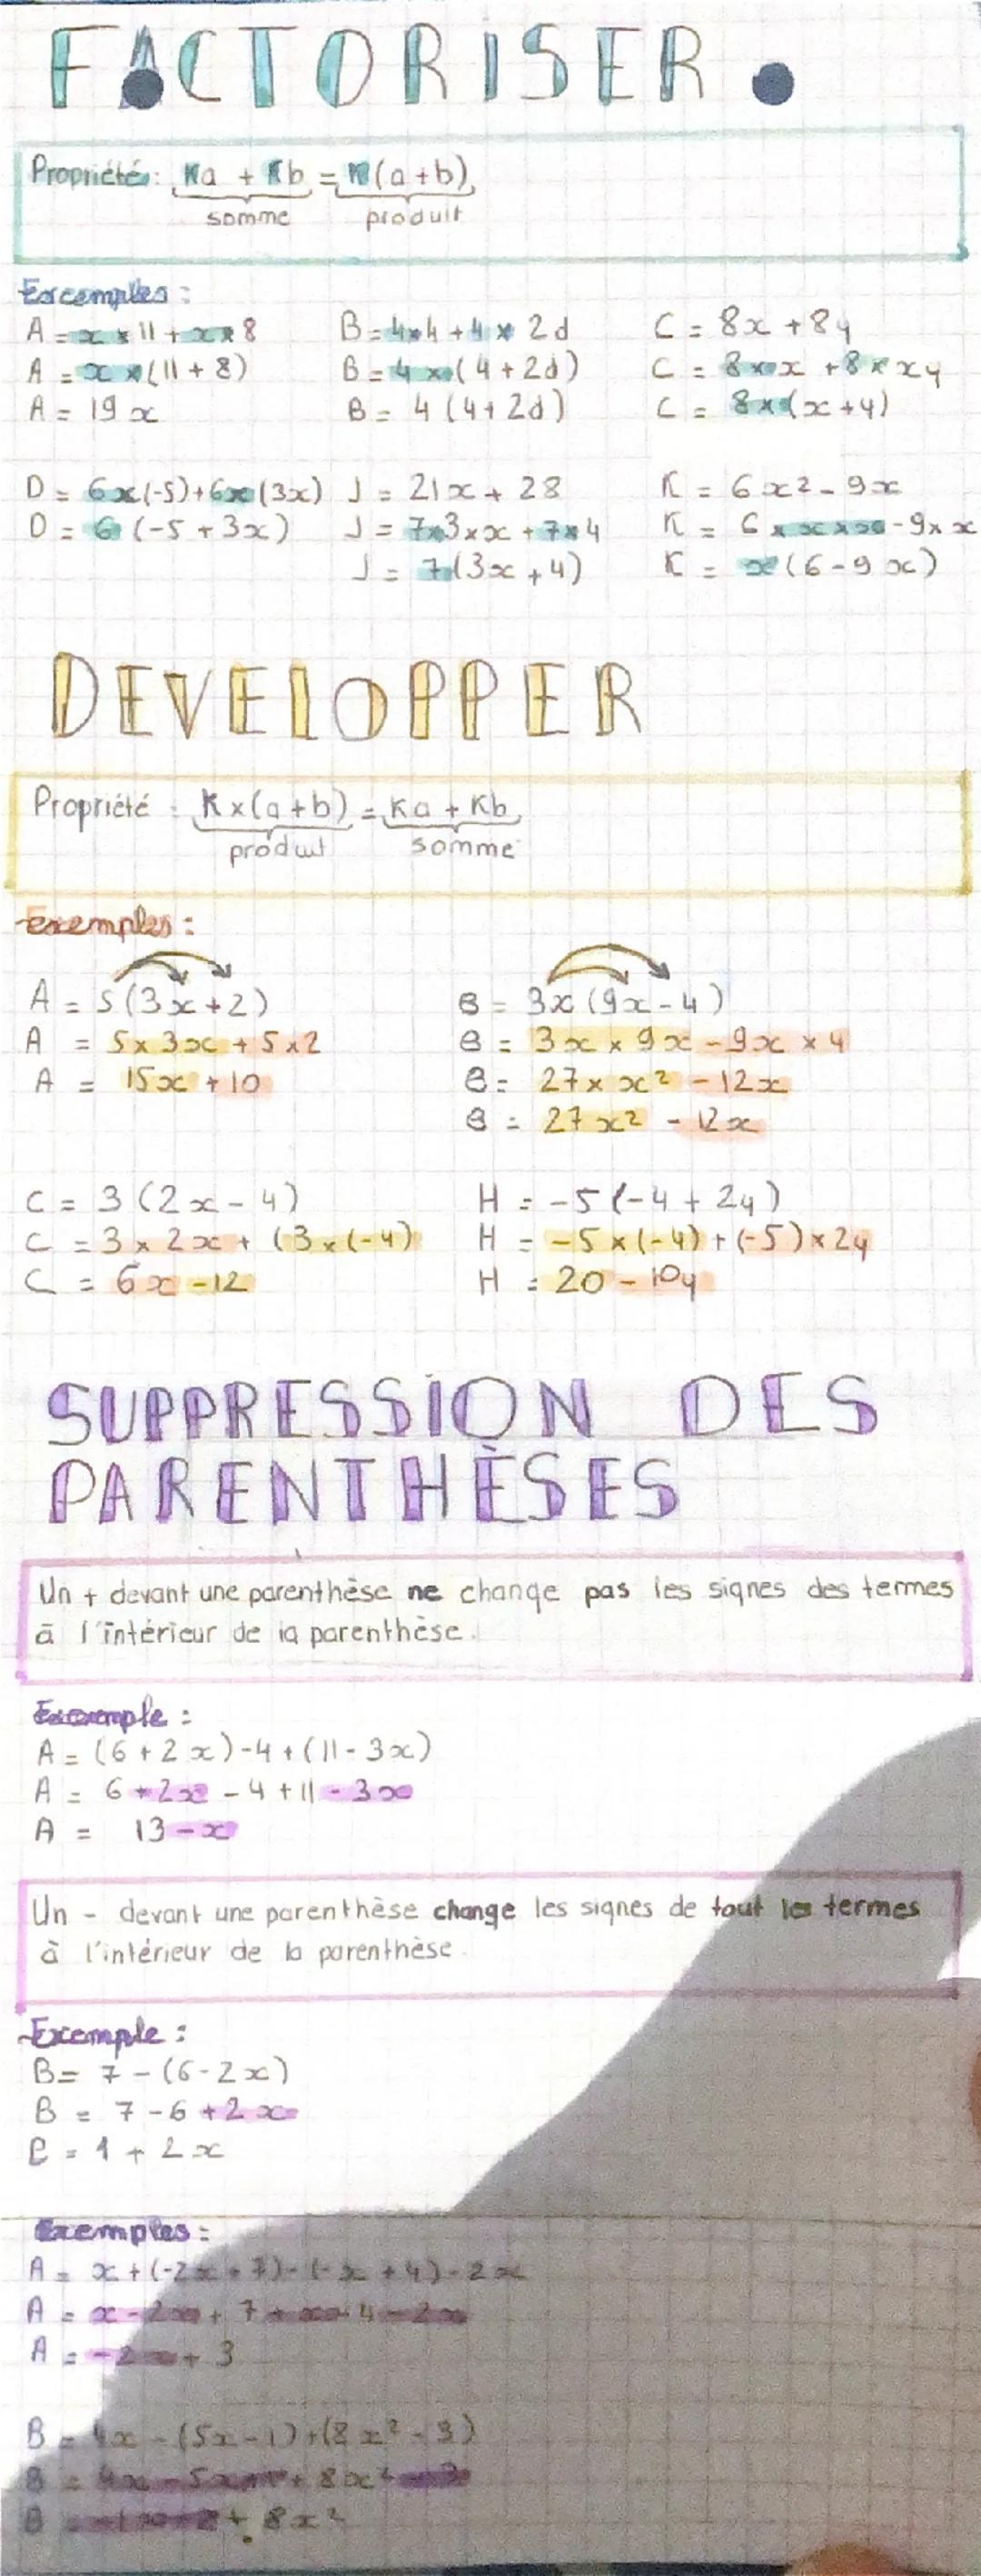 FACTORISER
Propriété: Ka + Kb = K(a+b)
somme produit
Exemples :
A = x × 11 + x × 8 B = 4×4 + 4 × 2d C = 8x + 8y
A = x × (11 + 8) B = 4 × (4 + 2d) C = 8 × x + 8 × xy
A = 19x B = 4 (4 + 2d) C = 8×(x+y)
D = 6x(-5)+6x(3x) J = 21x + 28 K = 6x² - 9x
D = 6 (-5 + 3x) J = 7×3×x + 7×4 K = 6 × x × x - 9 × x
J = 7(3x + 4) K = x(6-9x)
DEVELOPPER
Propriété : K×(a+b) = Ka + Kb
produit somme
exemples :
A = 5(3x+2) B = 3x(9x-4)
A = 5×3x + 5×2 B = 3x × 9x - 9x × 4
A = 15x + 10 B = 27 × x² - 12x
B = 27x² - 12x
C = 3 (2x - 4) H = -5 (-4 + 2y)
C = 3 × 2x + (3×(-4) H = -5×(-4) + (-5)×2y
C = 6x - 12 H = 20 - 10y
SUPPRESSION DES
PARENTHÈSES
Un + devant une parenthèse ne change pas les signes des termes
à l'intérieur de la parenthèse.
Exemple :
A = (6 + 2x) - 4 + (11 - 3x)
A = 6 + 2x - 4 + 11 - 3x
A = 13 - x
Un - devant une parenthèse change les signes de tout les termes
à l'intérieur de la parenthèse.
Exemple :
B = 7 - (6 - 2x)
B = 7 - 6 + 2x
B = 1 + 2x
Exemples :
A = x + (-2x + 7) - (-x + 4) - 2x
A = x - 2x + 7 + x - 4 - 2x
A = -2x + 3
B = 4x - (5x - 1) + (8x² - 3)
B = 4x - 5x + 1 + 8x² - 3
B = + 8x²